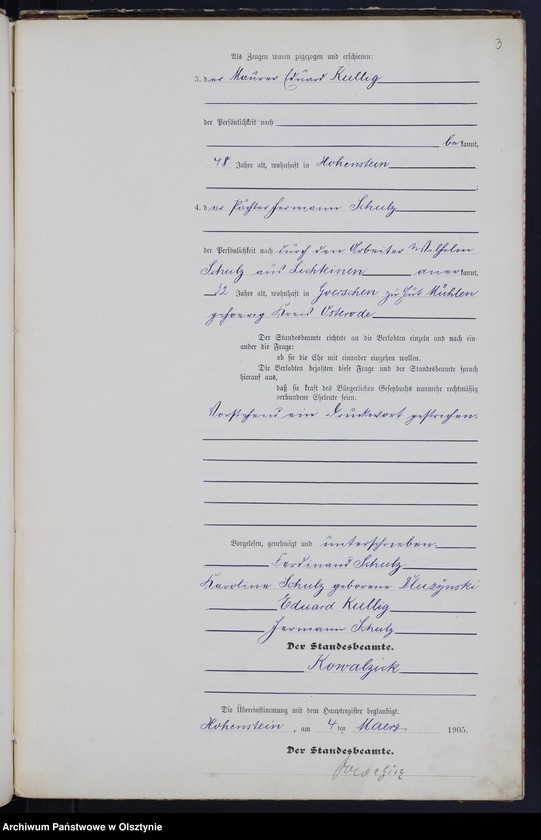 3
Als Zeugen waren zugezogen und erschienen:
3. der Maurer Eduard Kullig
der Persönlichkeit nach
bekannt,
48 Jahre alt, wohnhaft in Hohenstein
;
4. der Pächter Hermann Schulz
der Persönlichkeit nach durch den Arbeiter Wilhelm
Schulz aus Lichteinen anerkannt,
52 Jahre alt, wohnhaft in zu Gut Mühlen
gehoerig Kreis Osterode
Der Standesbeamte richtete an die Verlobten einzeln und nach ein-
ander die Frage:
ob sie die Ehe mit einander eingehen wollen.
Die Verlobten bejahten diese Frage und der Standesbeamte sprach
hierauf aus,
daß sie kraft des Bürgerlichen Gesetzbuchs nunmehr rechtmäßig
verbundene Eheleute seien.
Vorstehend ein Druckwort gestrichen.
Vorgelesen, genehmigt und unterschrieben.
Ferdinand Schulz
Karoline Schulz geborene Dluzynski
Eduard Kullig
Hermann Schulz
Der Standesbeamte.
Kowalzick
Die Übereinstimmung mit dem Hauptregister beglaubigt.
Hohenstein, am 4 ten Maerz 1905.
Der Standesbeamte.
Archiwum Państwowe w Olsztynie